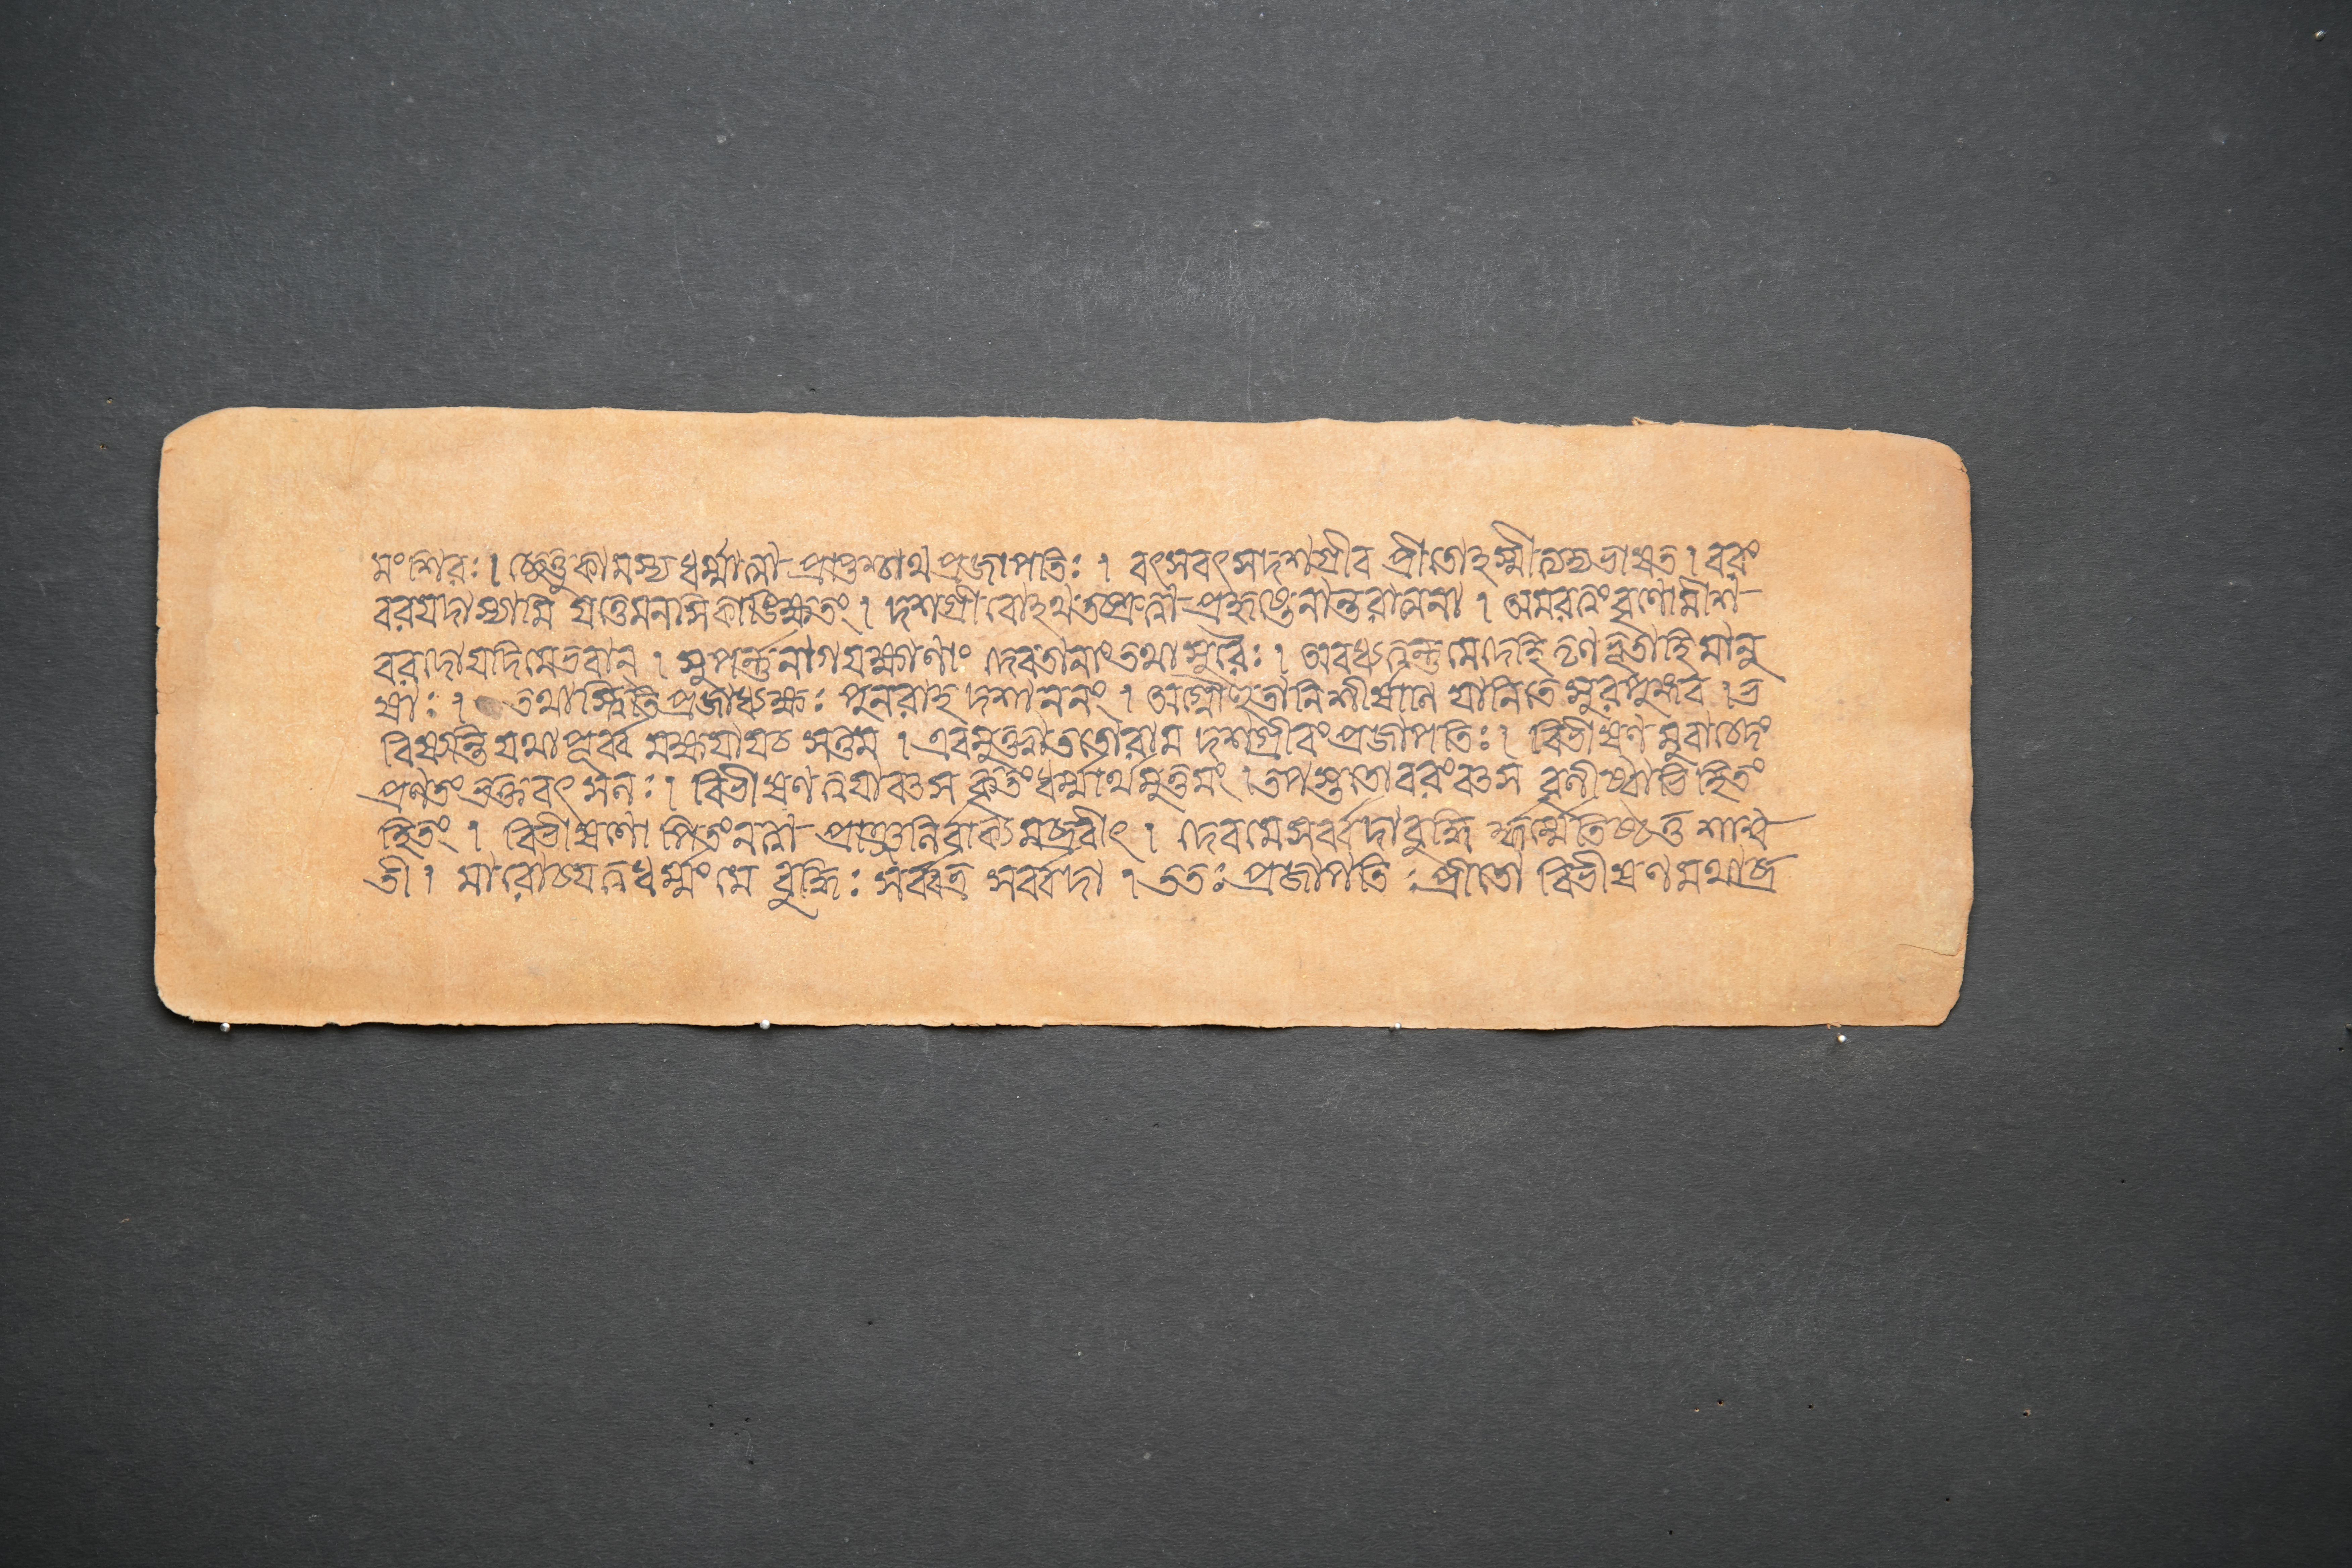 মংশিরঃ। ছেত্তুকামস্যধর্ম্মাত্মা প্রাপ্তশ্চাথপ্রজাপতিঃ। বৎসবৎসদশগ্রীব প্রীতোহস্মীত্যভ্যভাষত। বরং
বরযদাস্যামি যত্তেমনসিকাঙ্ক্ষিতং। দশগ্রীবোহথতচ্ছ্রুত্বা প্রহৃষ্টেনান্তরাত্মনা। অমরত্বংবৃণোমীশ
বরদোযদিমেভবান্। সুপর্ণনাগযক্ষাণাং দেবতানাংতথাসুরৈঃ। অবধ্যত্বন্তুমেদেহি তৃণভূতাহিমানু
ষাঃ। তথাস্ত্বিতিপ্রজাধ্যক্ষঃ পুনরাহ দশাননং। অগ্নৌহুতানিশীর্ষাণি যানিতেসুরপুঙ্গব। ভ
বিষ্যন্তি যথাপূর্ব্ব মক্ষযাযচ সত্তম। এবমুক্ত্বাততোরাম দশগ্রীবংপ্রজাপতিঃ। বিভীষণ মুবাচেদং
প্রণতংভক্তবৎসলঃ। বিভীষণ ত্বযাবৎস কৃতংধর্ম্মার্থমুত্তমং। তপস্ততোবরংবৎস বৃণীষ্বাভিহিতং
হিতং। বিভীষণোপিতংনত্বা প্রাঞ্জলির্বাক্যমব্রবীৎ। দেবমেসর্ব্বদাবুদ্ধি র্ধর্ম্মেতিষ্ঠতু শাশ্ব
তী। মারোচযত্বধর্ম্মংমে বুদ্ধিঃ সর্ব্বত্র সর্ব্বদা। ততঃ প্রজাপতিঃ প্রীতো বিভীষণমথাব্র